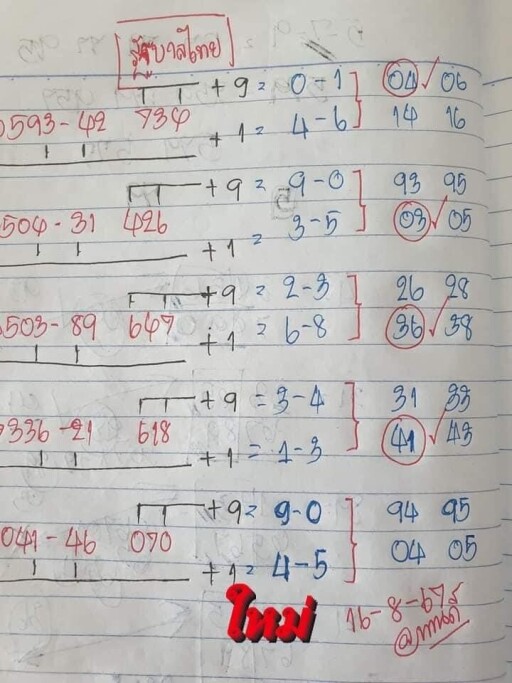 รัฐบาลไทย
+ 9 = 0 - 1 04 06
0593 - 42 734
+ 1 = 4 - 6 14 16
+ 9 = 9 - 0 93 95
504 - 31 426
+ 1 = 3 - 5 03 05
+ 9 = 2 - 3 26 28
0503 - 89 647
+ 1 = 6 - 8 36 38
+ 9 = 3 - 4 31 33
336 - 21 618
+ 1 = 1 - 3 41 43
+ 9 = 9 - 0 94 95
041 - 46 070
+ 1 = 4 - 5 04 05
ใหม่
16 - 8 - 67